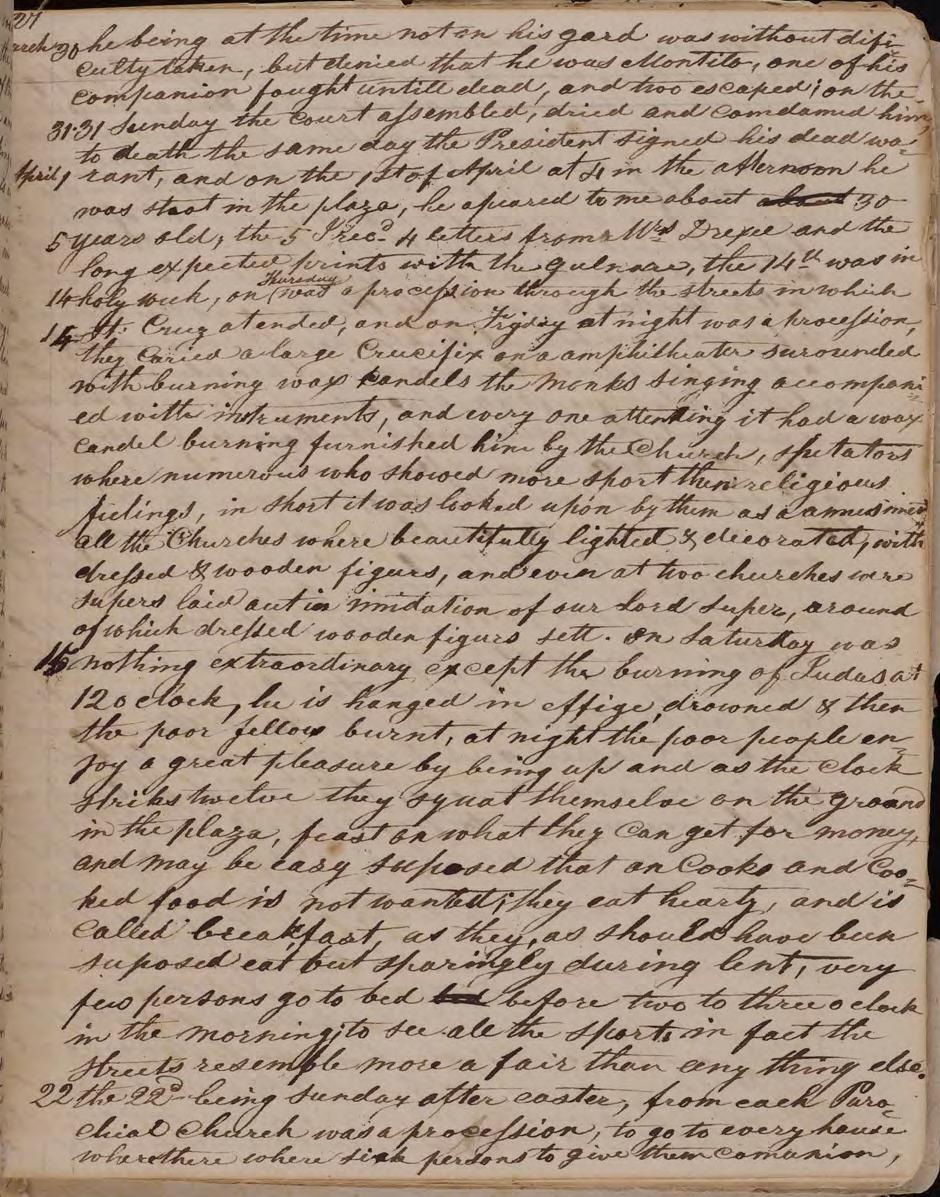 27
March 30 he being at the time not on his gard was without difi=
culty taken, but denied that he was Montito, one of his
companion fought untill dead, and two escaped; on the
31. 31 Sunday the Court assembled, dried and comdamed him,
to death the same day the President signed his dead wa=
April 1 rant, and on the 1st of April at 4 in the afternoon he
was shoot in the plaza, he apeared to me about about 30
5 years old, the 5 I recd 4 letters from Mrs Drexel and the
long expected prints with the Gulnare, the 14th was in
14 holy week, on Thursday was a procession through the streets in which
St. Cruz atended, and on Fryday at night was a procession,
15 they caried a large Crucifix on a amphitheater surounded
with burning wax candels the monks singing accompani=
ed with instruments, and every one attending it had a wax
candel burning furnished him by the Church, spetators
where numerous who showed more sport then religious
fielings, in short it was looked upon by them as a amusiment,
all the Churches where beautifully lighted & decorated, with
dressed & wooden figurs, and even at two churches were
supers laid out in imidation of our Lord Super, around
of which dressed wooden figurs sett. On Saturday was
16 nothing extraordinary except the burning of Judas at
12 o clock, he is hanged in effige, drowned & then
the poor fellow burnt, at night the poor people en=
joy a great pleasure by being up and as the clock
striks twelve they squat themselve on the ground
in the plaza, feast on what they can get for money,
and may be easy suposed that on Cooks and Coo=
ked food is not wanted; they eat hearty, and is
called breakfast, as they, as should have been
suposed eat but sparingly during lent, very
few persons go to bed bed before two to three o clock
in the morning; to see all the sports in fact the
streets resemble more a fair than any thing else.
22 the 22d being Sunday after easter, from each Paro=
chial Church was a procession, to go to every house
where there where sick persons to give them comunion,